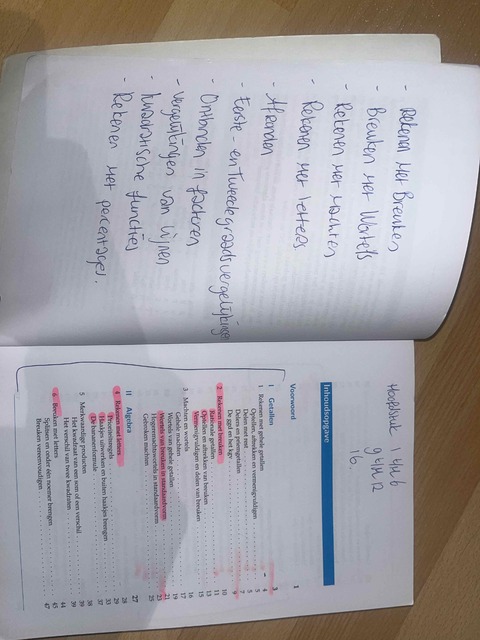 - Rekenen Met Breuken
- Breuken Met Wortels
- Rekenen Met Machten
- Rekenen Met letters
- Afronden
- Eerste - en Tweedegraadsvergelijkingen
- Ontbinden in factoren
- Vergelijkingen van lijnen
- Kwadratische functies
- Rekenen Met percentages.
Hoofdstuk 1 t/m 6
9 t/m 12
16
Inhoudsopgave
Voorwoord 1
I Getallen 3
1 Rekenen met gehele getallen 4
Optellen, aftrekken en vermenigvuldigen 5
Delen met rest 5
Delers en priemgetallen 7
De ggd en het kgv 9
2 Rekenen met breuken 10
Rationale getallen 11
Optellen en aftrekken van breuken 13
Vermenigvuldigen en delen van breuken 15
3 Machten en wortels 16
Gehele machten 17
Wortels van gehele getallen 19
Wortels van breuken in standaardvorm 21
Hogeremachtswortels in standaardvorm 23
Gebroken machten 25
II Algebra 27
4 Rekenen met letters 28
Prioriteitsregels 29
Haakjes uitwerken en buiten haakjes brengen 33
De bananenformule 37
5 Merkwaardige producten 38
Het kwadraat van een som of een verschil 39
Het verschil van twee kwadraten 39
6 Breuken met letters 44
Splitsen en onder één noemer brengen 45
Breuken vereenvoudigen 47